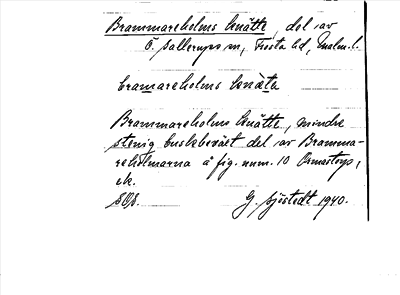 Brammareholms knätte, del av
Ö. Sallerups sn, Frosta hd, Malm. l.
bramareholms knäta
Brammareholms knätte, mindre
stenig buskbeväxt del av Bramma-
reholmarna å fig. num. 10 Ormastorp,
ek.
G. Sjöstedt 1940.